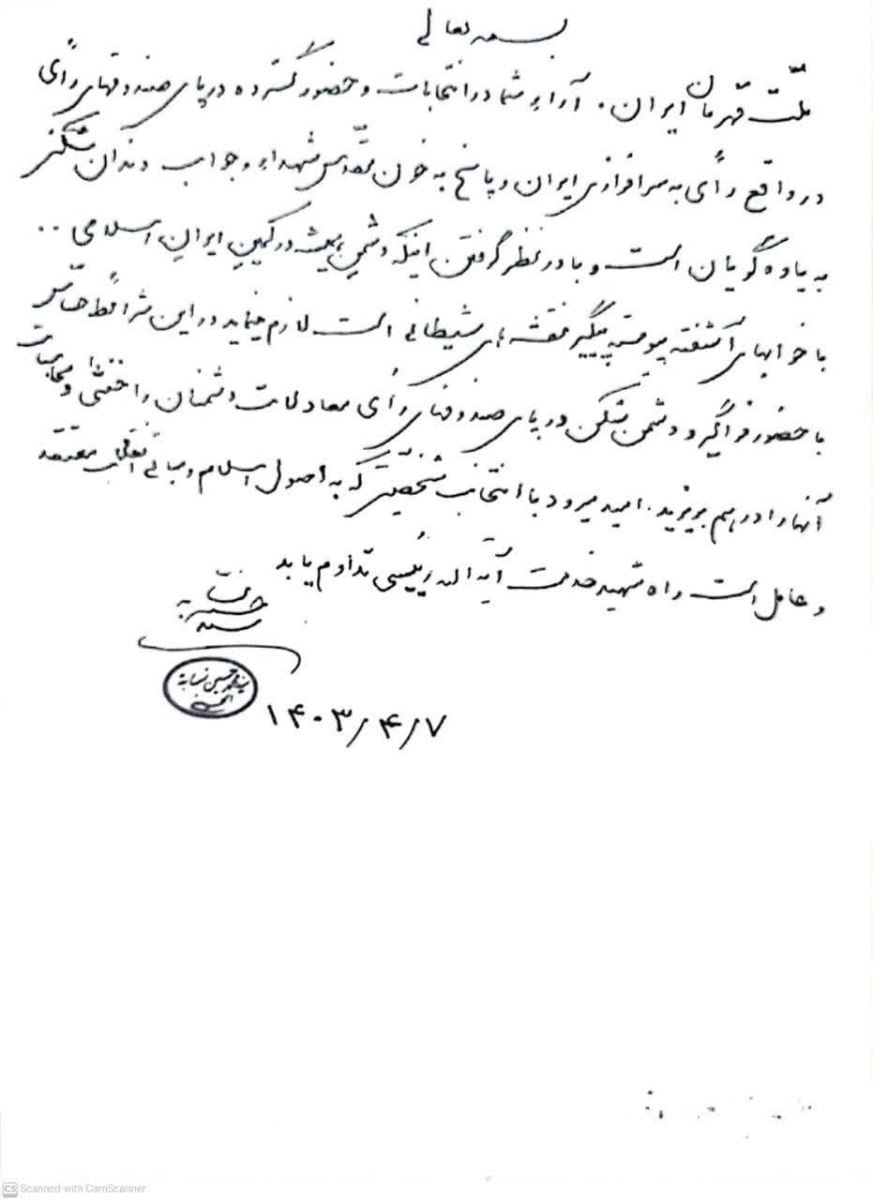 بسمه تعالی
ملّت قهرمان ایران. آراء شما در انتخابات و حضور گسترده در پای صندوقهای رأی
در واقع رأی به سرافرازی ایران و پاسخ به خون مقدّس شهداء و جواب دندان شکن
به یاوه گویان است و با در نظر گرفتن اینکه دشمن همیشه در کمین ایران اسلامی ..
با خوابهای آشفته پیوسته پیگیر نقشه های شیطانی است لازم مینماید در این شرائط حسّاس
با حضور فراگیر و دشمن شکن در پای صندوقهای رأی معادلات دشمنان را خنثی و محاسبات
آنها را در هم بریزید. امید میرود با انتخاب شخصیّتی که به اصول اسلام و مبانی انقلاب معتقد
و عامل است راه شهید خدمت آیة الله رئیسی تداوم یابد
سید
۱۴۰۳/۴/۷
CS Scanned with CamScanner